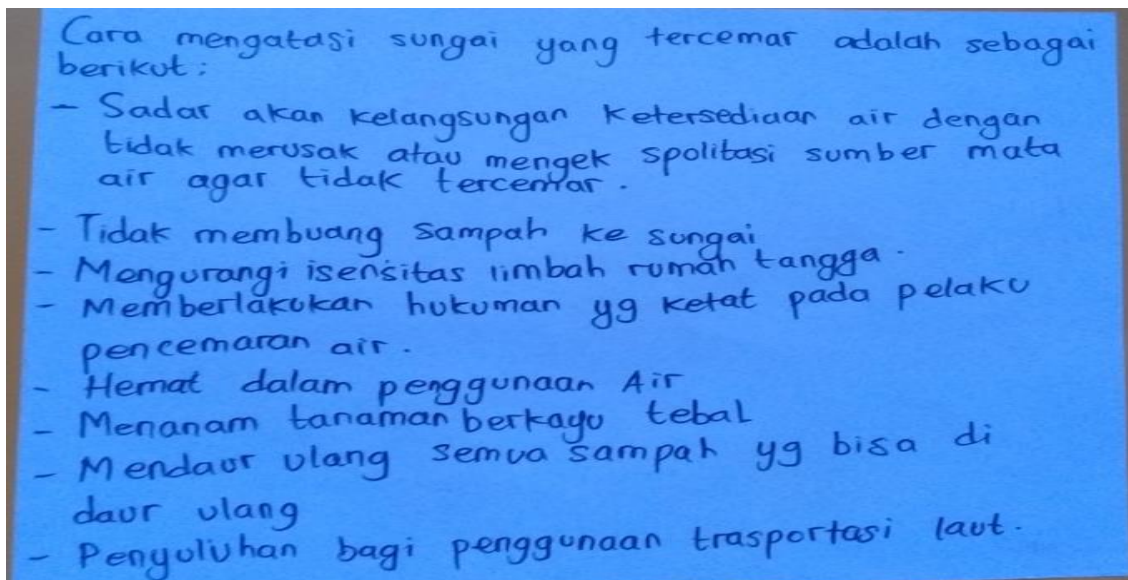 Cara mengatasi sungai yang tercemar adalah sebagai
berikut:
- Sadar akan kelangsungan ketersediaan air dengan
tidak merusak atau mengek spolitasi sumber mata
air agar tidak tercemar.
- Tidak membuang sampah ke sungai
- Mengurangi isensitas limbah rumah tangga.
- Memberlakukan hukuman yg ketat pada pelaku
pencemaran air.
- Hemat dalam penggunaan Air
- Menanam tanaman berkayu tebal
- Mendaur ulang semua sampah yg bisa di
daur ulang
- Penyuluhan bagi penggunaan trasportasi laut.